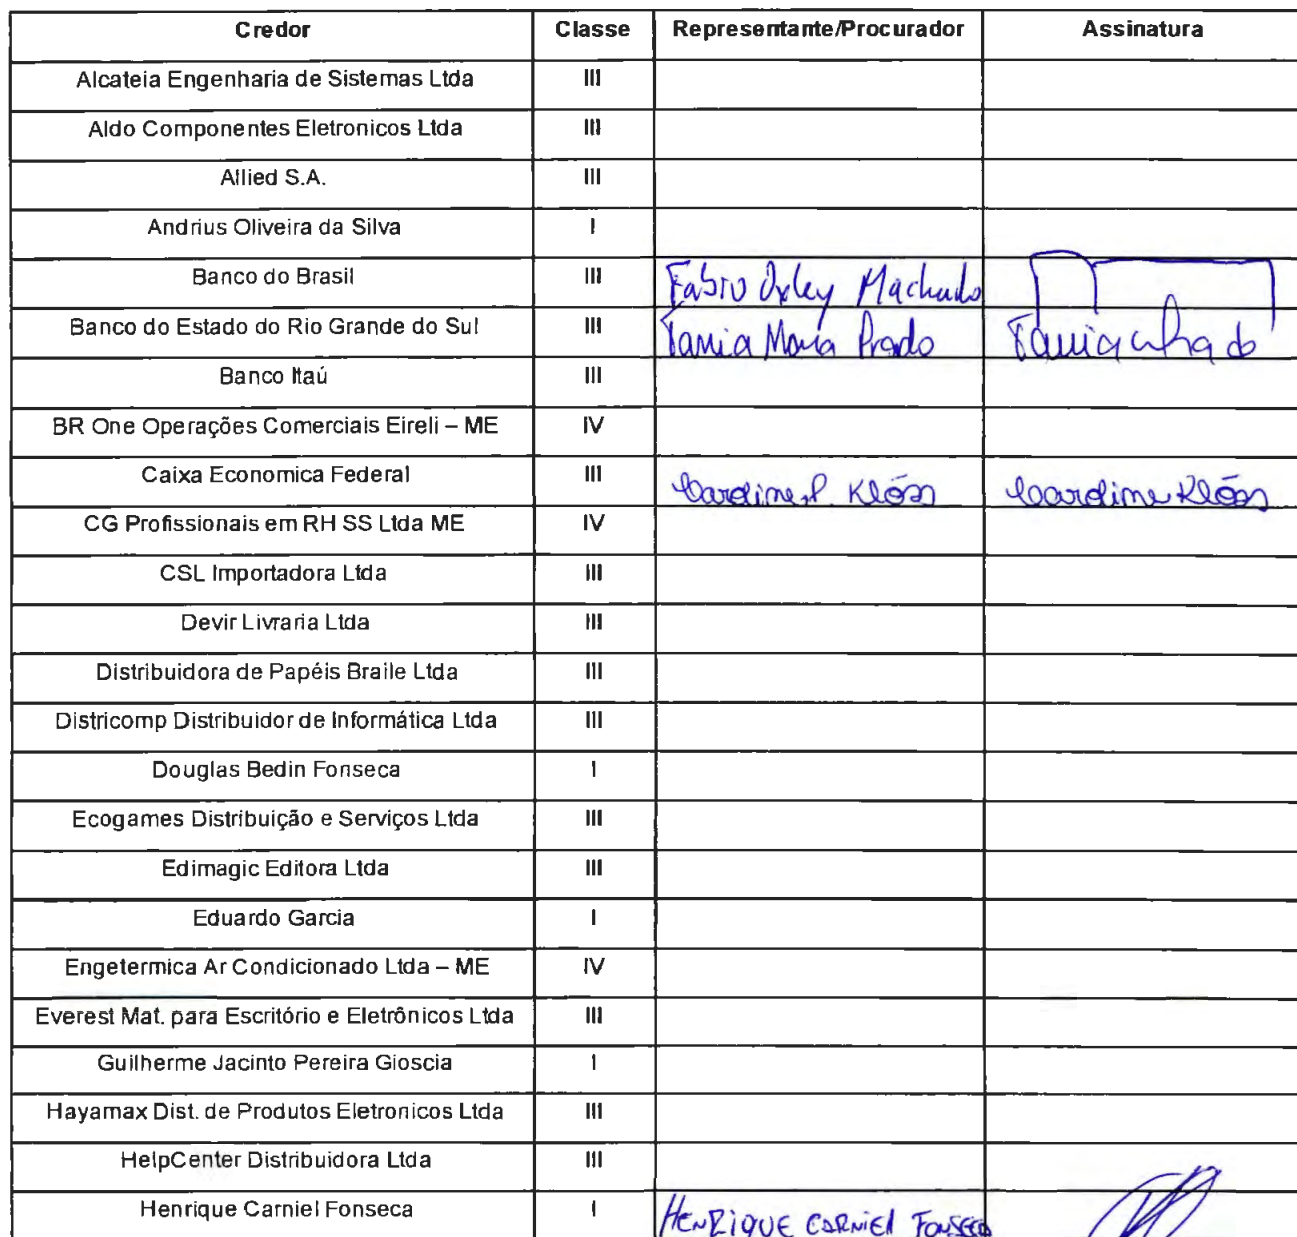 Credor Classe Representante/Procurador Assinatura
Alcateia Engenharia de Sistemas Ltda III
Aldo Componentes Eletronicos Ltda III
Allied S.A. III
Andrius Oliveira da Silva I
Banco do Brasil III Fabio Oxley Machado
Banco do Estado do Rio Grande do Sul III Tania Maria Prado
Banco Itaú III
BR One Operações Comerciais Eireli – ME IV
Caixa Economica Federal III Caroline P. Klóss Caroline Klóss
CG Profissionais em RH SS Ltda ME IV
CSL Importadora Ltda III
Devir Livraria Ltda III
Distribuidora de Papéis Braile Ltda III
Districomp Distribuidor de Informática Ltda III
Douglas Bedin Fonseca I
Ecogames Distribuição e Serviços Ltda III
Edimagic Editora Ltda III
Eduardo Garcia I
Engetermica Ar Condicionado Ltda – ME IV
Everest Mat. para Escritório e Eletrônicos Ltda III
Guilherme Jacinto Pereira Gioscia I
Hayamax Dist. de Produtos Eletronicos Ltda III
HelpCenter Distribuidora Ltda III
Henrique Carniel Fonseca I HENRIQUE CARNIEL FONSECA